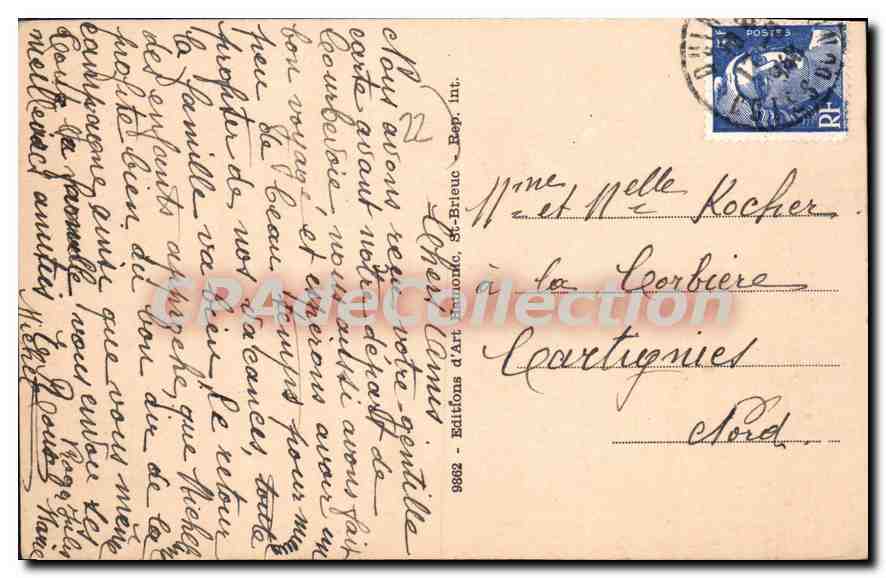 Chers Amis
Nous avons reçu votre gentille
carte avant notre départ de
Courbevoie, nous aussi avons fait
bon voyage, et espérons avoir un
peu de beau temps pour
profiter de nos vacances, toute
la famille va bien. Le retour
des enfants approche, que Michel
profite bien du bon air de la
campagne, ainsi que vous même
Toute la famille vous envoie ses
meilleures amitiés
Roger
Marie
Michel
22
9862 - Editions d'Art Hamonic, St-Brieuc - Rep. int.
POSTES
RF
Mme et Melle Rocher
à la Corbière
Cartignies
Nord
CPAdeCollection